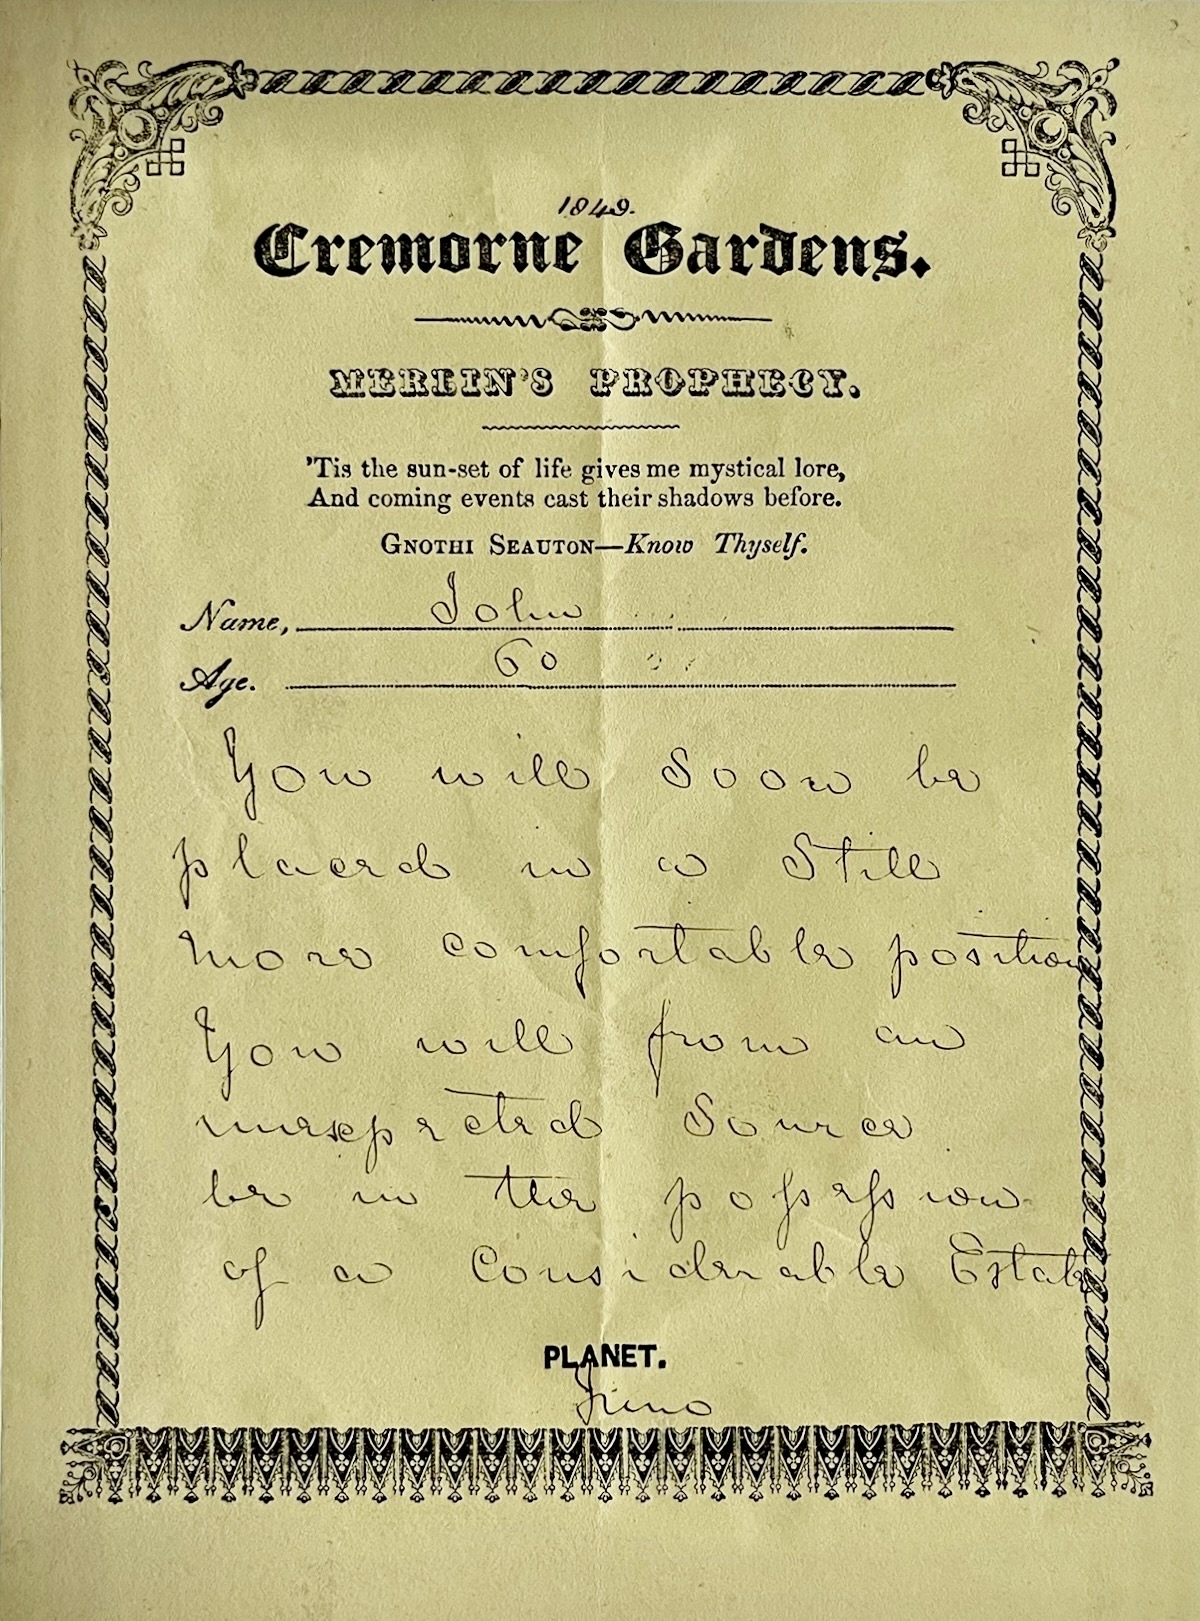 1849.
Cremorne Gardens.
MERLIN'S PROPHECY.
'Tis the sun-set of life gives me mystical lore,
And coming events cast their shadows before.
GNOTHI SEAUTON—Know Thyself.
Name, John
Age. 60
You will soon be
placed in a Still
more comfortable position
You will from an
unexpected Source
be in the possession
of a Considerable Estate
PLANET.
Juno